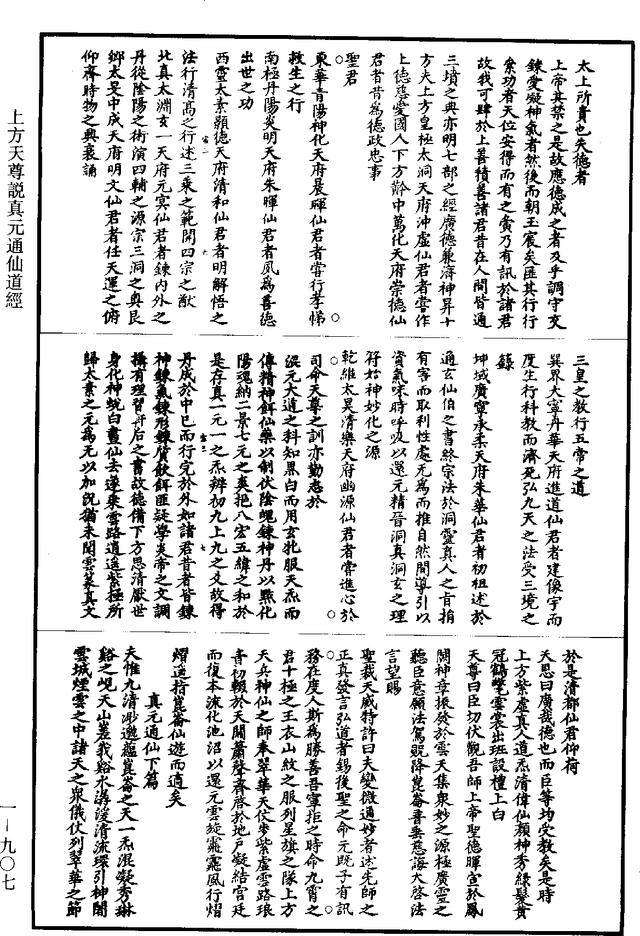 太上所貴也失德者
上帝其禁之是故應德成之者及乎調守交
鍊愛凝神氣者然後而朝玉宸矣匪其行行
矣功者天位安得而有之賞乃有訊於諸君
故我可肆於上善積善諸君昔在人間皆通
三墳之典亦明七部之經廣德兼濟神昇十
方夫上方皇極太洞天府沖虛仙君者嘗作
上德慈愛國人下方齡中萬化天府崇德仙
君者昔為德政忠事
聖君
東華青陽神化天府晨暉仙君者嘗行孝悌
救生之行
南極丹陽炎明天府朱暉仙君者夙為善德
出世之功
西靈太素顥德天府清和仙君者明解悟之
法行清高之行述三乘之範開四宗之猷
北真太淵玄一天府元寞仙君者鍊內外之
丹從陰陽之術演四輔之源宗三洞之奧艮
鄉太旻中成天府明文仙君者任天運之俯
仰齊時物之興衰誦
三皇之教行五常之道
巽界大寧丹華天府進道仙君者建像宇而
度生行科教而濟死弘九天之法受三境之
籙
坤域廣靈承柔天府朱華仙君者初祖述於
通玄仙伯之書終宗法於洞靈真人之旨捐
有害而取利性處无為而推自然閒導引以
資氣味時呼吸以還元精晉洞真洞玄之理
符始神妙化之源
乾維太昊清樂天府幽源仙君者常進心於
司命天尊之訓亦勤志於
混元大道之科知黑白而用玄牝服天炁而
傳精神餌仙藥以制伏陰魄鍊神丹以煕化
陽魂納二景七元之炁挹八宏五緯之和於
是存真一元一之炁辨初九上九之爻故得
丹成於中已而行完於外如諸君昔者皆鍊
神鍊氣鍊形鍊質飲餌匪疑學炎帝之文調
攝有理習岐后之書故德備下方思清厭世
身化神蛻白晝仙去遂乘雲路逍遙紫極所
歸太素之元為无以加況猶未聞雲篆真文
於是清都仙君仰荷
天恩曰廣哉德也而臣等均受教矣是時
上方紫虛真人道炁清偉仙顏神秀綠髮黃
冠鶴氅雲裳出班設禮上白
天尊曰臣切伏觀吾師上帝聖德暉宣於鳳
闕神章振發於雲天集衆妙之源極廣靈之
聽臣意願法駕貺降崑崙普垂慈誨大啓法
言望賜
聖裁天威特許曰夫變微通妙者述先師之
正真發言弘道者錫後聖之命元既予有訊
務在度人斯為勝善吾寧拒之時命九霄之
君十極之王衣山紋之服列星旗之隊上方
天兵神仙之師奉翠華天仗步紫虛雲路琅
音初輟於天關簫聲齊啓於地戶凝結宮廷
而復本流化池沼以還元雲旋靄靄風行熠
熠遙指崑崙仙遊而逍矣
真元通仙下篇
夫惟九清渺邈蘊崑崙之天一炁混凝秀琳
谿之峴天山嵳我谿水潺湲清流環引神闕
雲城煙雲之中諸天之衆儀仗列翠華之節
上方天尊說真元通仙道經
一－九〇七